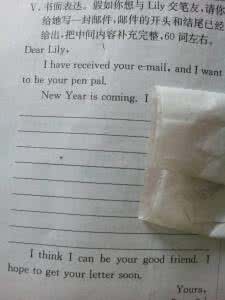 V. 书面表达。假如你想与 Lily 交笔友,请你
给她写一封邮件,邮件的开头和结尾已经
给出,把中间内容补充完整,60 词左右。
Dear Lily,
I have received your e-mail, and I want
to be your pen pal.
New Year is coming. I
I think I can be your good friend. I
hope to get your letter soon.
Yours,